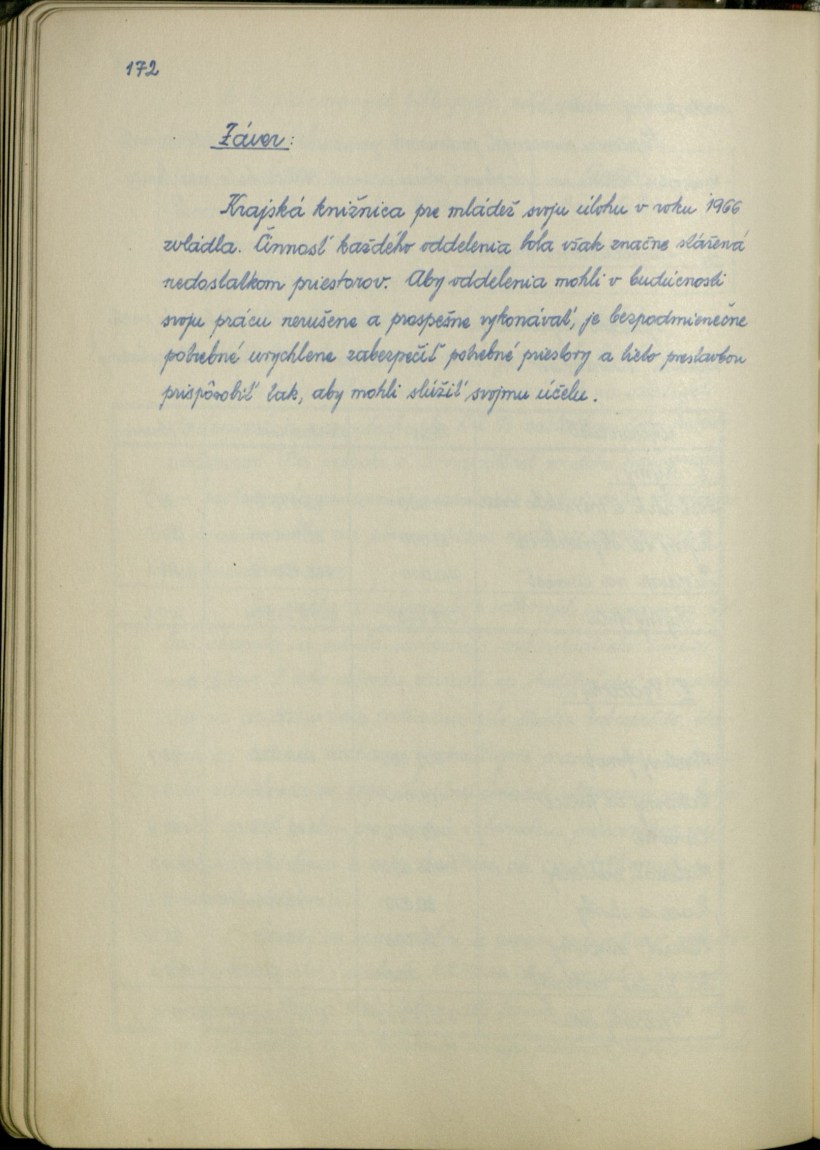 172
Záver:
Krajská knižnica pre mládež svoju úlohu v roku 1966
zvládla. Činnosť každého oddelenia bola však značne stážená
nedostatkom priestorov. Aby oddelenia mohli v budúcnosti
svoju prácu nerušene a prospešne vykonávať, je bezpodmienečne
potrebné urýchlene zabezpečiť potrebné priestory a tieto prestavbou
prispôsobiť tak, aby mohli slúžiť svojmu účelu.